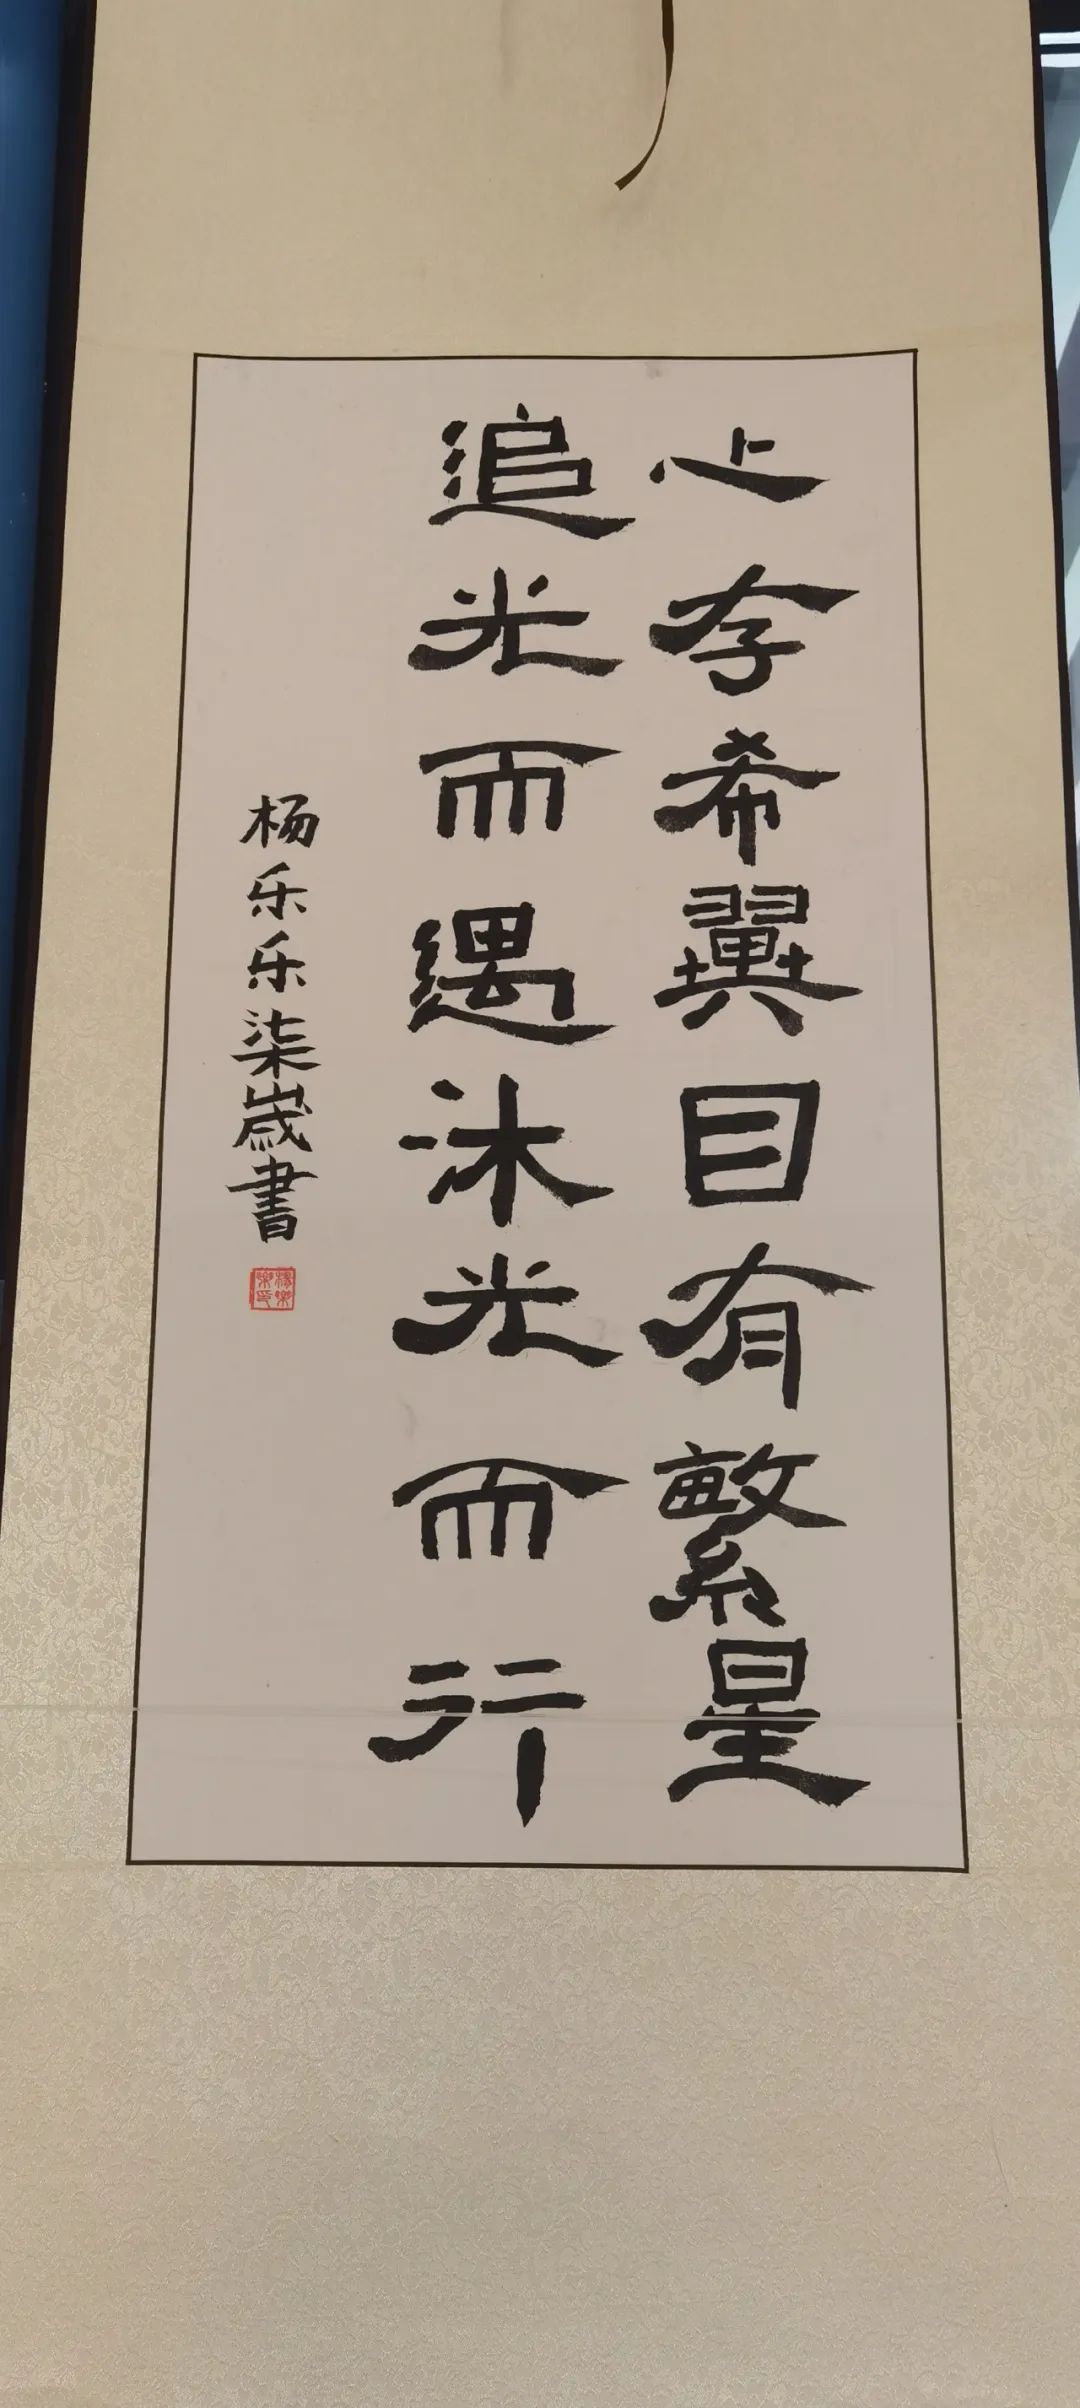 心存希翼目有繁星
追光而遇沐光而行
杨乐乐柒歲書